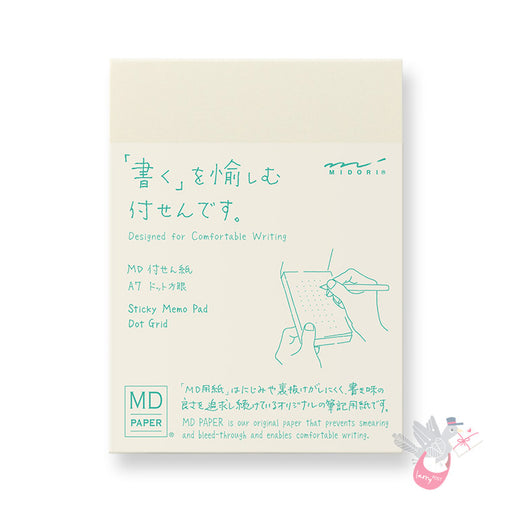 「書く」を愉しむ
MIDORI®
付せんです。
Designed for Comfortable Writing
MD 付せん紙
A7 ドット方眼
Sticky Memo Pad
Dot Grid
「MD用紙」はにじみや裏抜けがしにくく、書き味の
良さを追求し続けているオリジナルの筆記用紙です。
MD
PAPER
®
MD PAPER is our original paper that prevents smearing
and bleed-through and enables comfortable writing.
larry